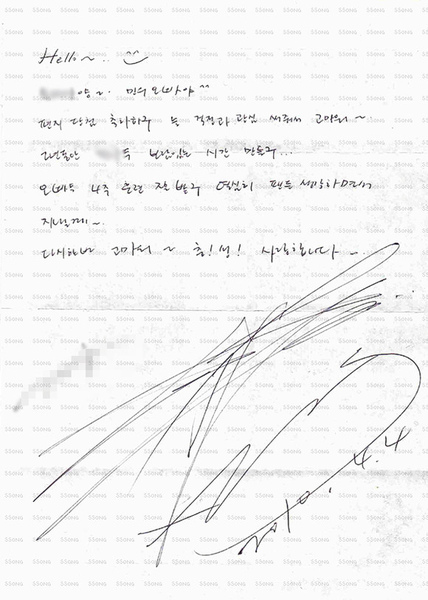 Hello~.. ^^
영~. 민우오빠야 ^^
편지 당첨 축하하구 늘 걱정과 관심 써줘서 고마워~
그년들안 득 보람있는 시간 만들구...
오빠는 4주 훈련 잘 받구 열심히 팬들 생각하면서
지낼께~.
다시한번 고마워~ 충!성! 사랑합니다~.
2010. 4.4